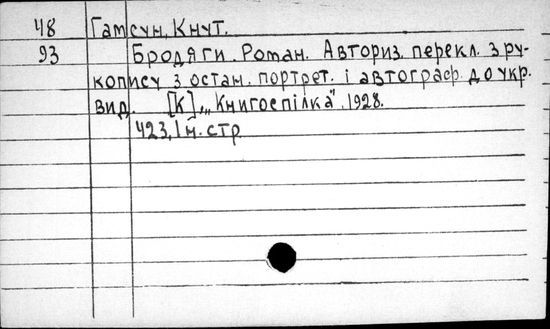 48 Гамсун, Кнут.
93 Бродяги. Роман. Авториз. перекл. з ру-
копису з остан. портрет. і автограф. до укр.
вид. [К], „Книгоспілка", 1928.
423, I н. стр